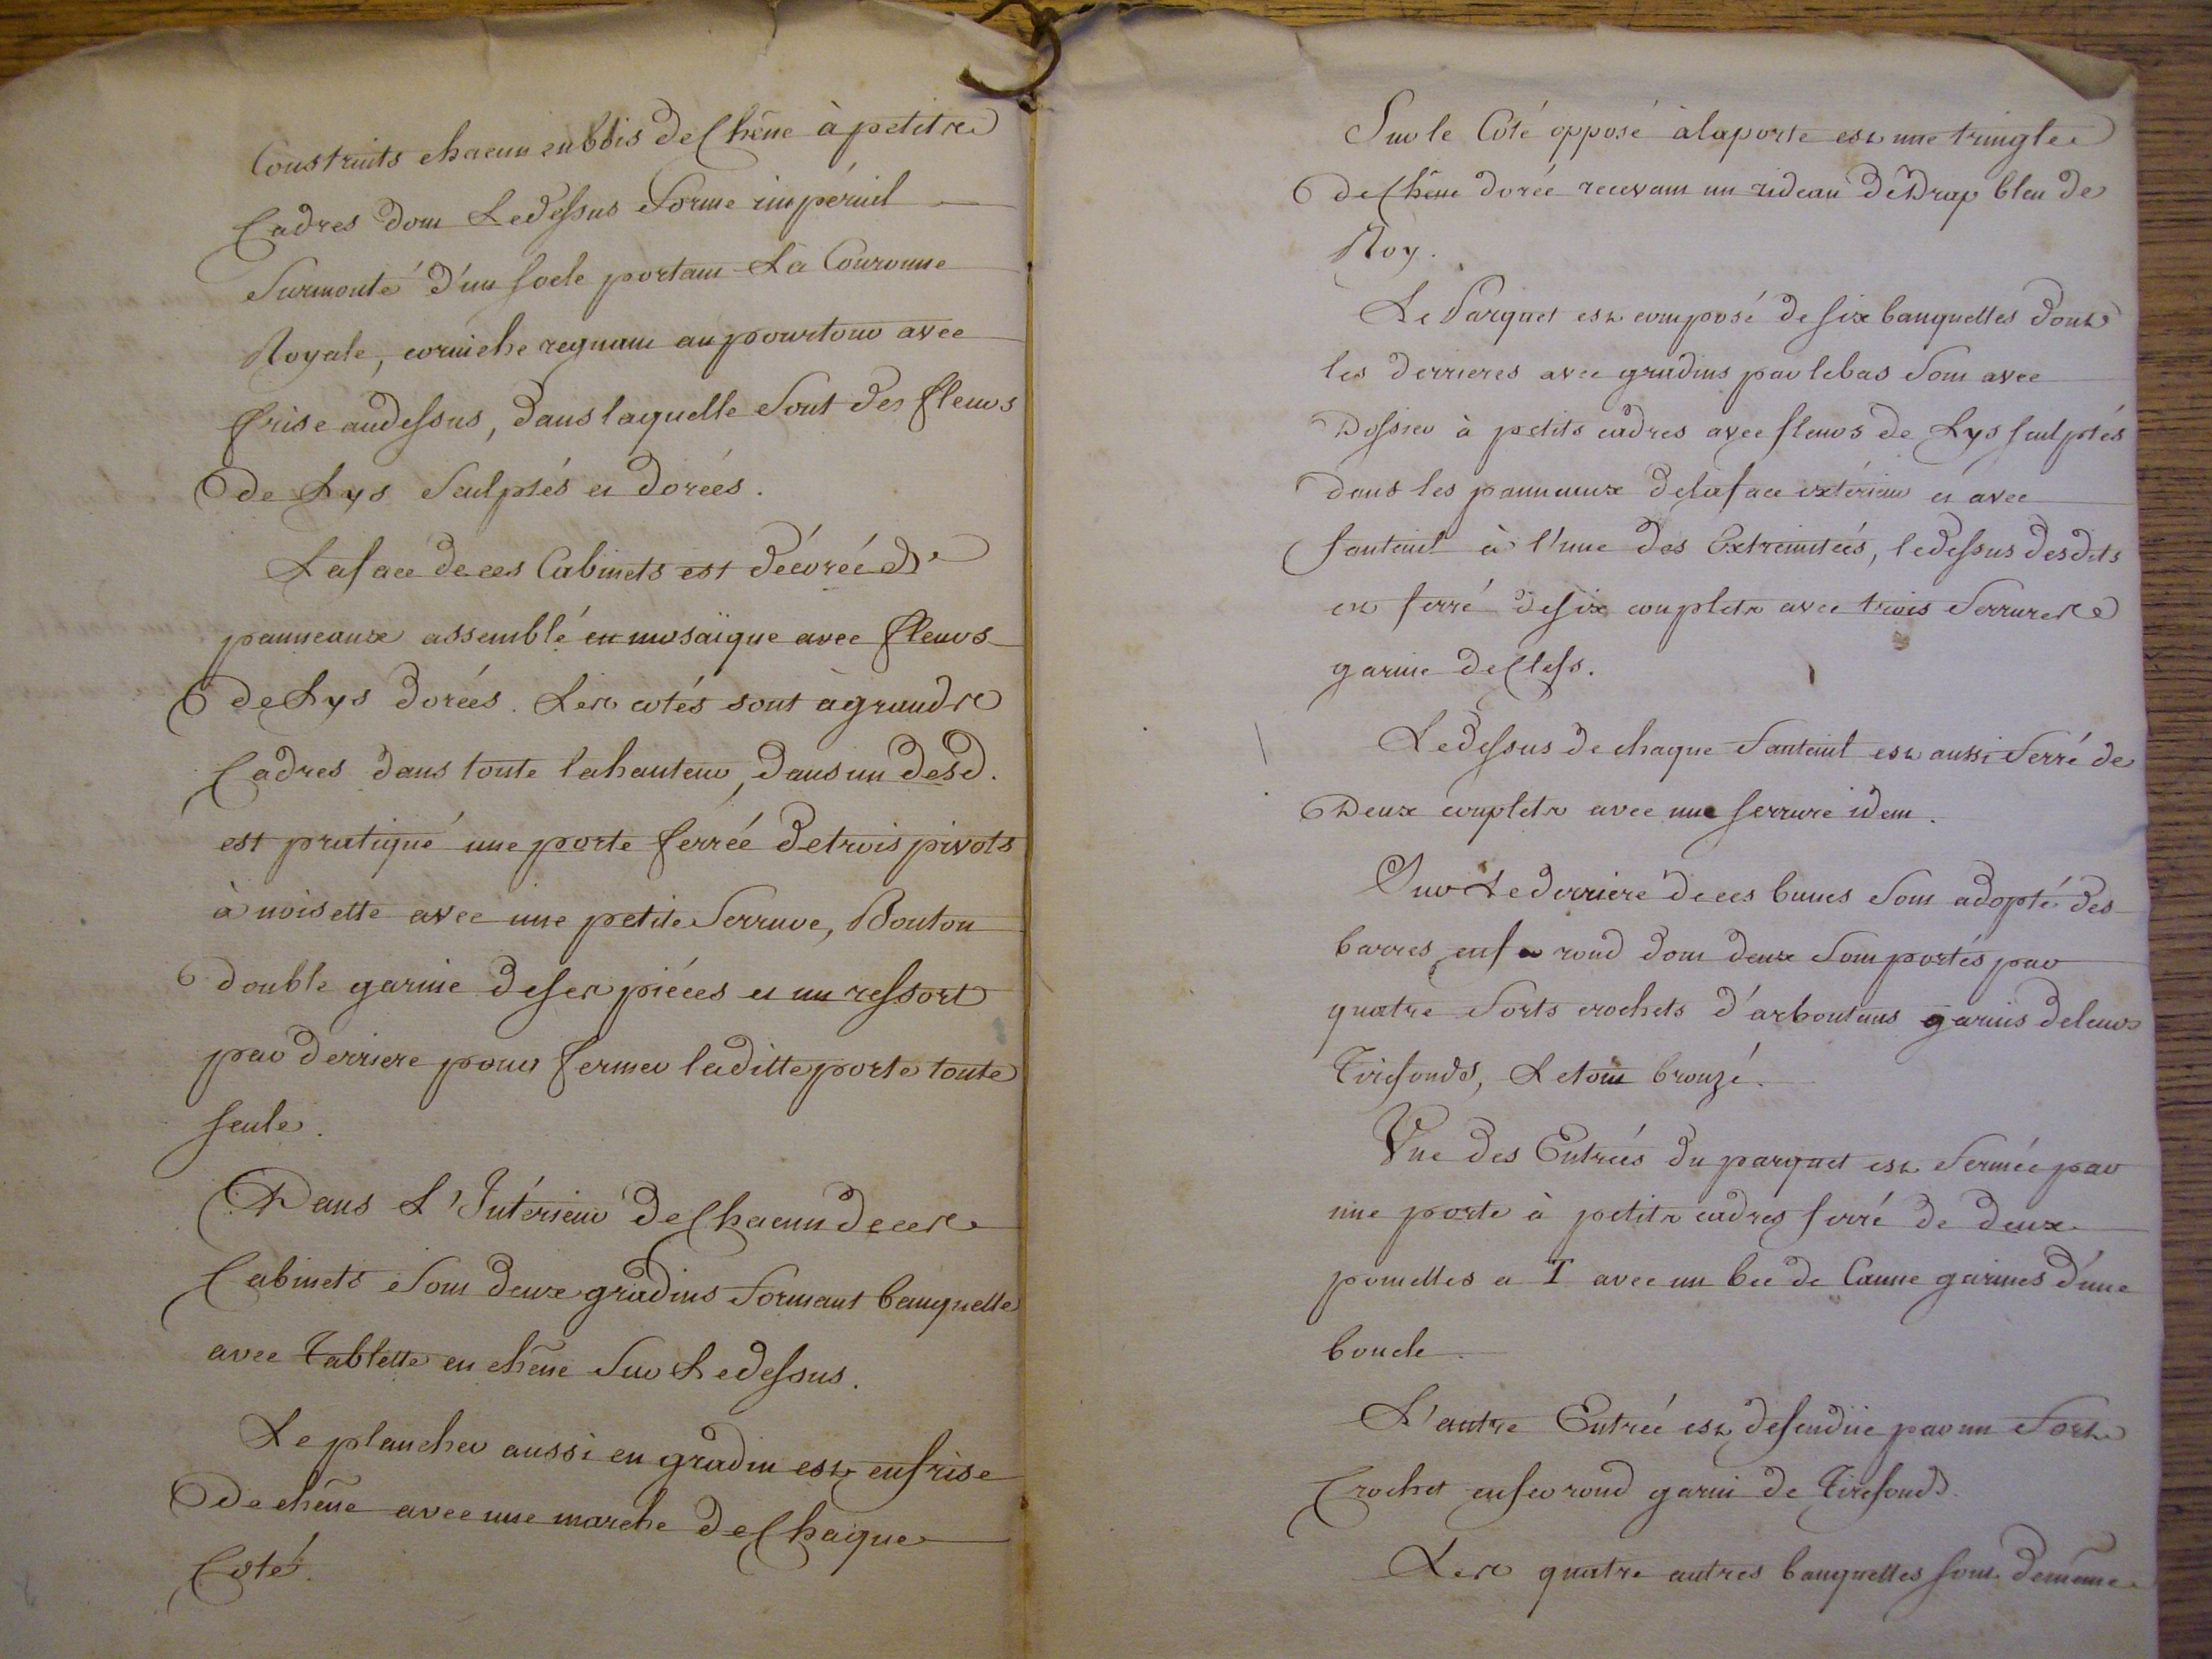 Construits chacun en bois de Chêne à petits
Cadres dont Le dessus forme impérial
Surmonté d'un socle portant La Couronne
Royale, corniche regnant au pourtour avec
frise audessus, dans laquelle sont des fleurs
de Lys Sculptés et dorées.
La face de ces Cabinets est décorée de
panneaux assemblé en mosaïque avec fleurs
de Lys dorées. Les cotés sont à grands
Cadres dans toute la hauteur, dans un desd.
est pratiqué une porte ferrée de trois pivots
à noisette avec une petite Serrure, Bouton
double garnie de ses piéces et un ressort
par derriere pour fermer la ditte porte toute
seule.
Dans L'Intérieur de Chacun de ces
Cabinets sont deux gradins formant banquette
avec Tablette en chêne Sur Le dessus.
Le plancher aussi en gradin est en frise
de chêne avec une marche de Chaque
Coté.
Sur le Coté opposé à la porte est une tringle
de Chêne dorée recevant un rideau de Drap bleu de
Roy.
Le Parquet est composé de six banquettes dont
les derrieres avec gradins par le bas sont avec
Dossier à petits cadres avec fleurs de Lys sculptés
dans les panneaux de la face extérieur et avec
fauteuil à l'une des Extremitées, le dessus desdits
est ferré de six couplets avec trois Serrures
garnie de Clefs.
Le dessus de chaque fauteuil est aussi ferré de
Deux couplets avec une serrure idem.
Sur Le derriere de ces bancs sont adopté des
barres en fer rond dont deux sont portés par
quatre forts crochets d'arboutans garnis de leurs
Tirefonds, Le tout bronzé.
Une des Entrées du parquet est fermée par
une porte à petits cadres ferré de deux
pomelles a T avec un bec de Canne garnies d'une
boucle.
L'autre Entrée est defendüe par un fort
Crochet en fer rond garni de Tirefonds.
Les quatre autres banquettes sont de même